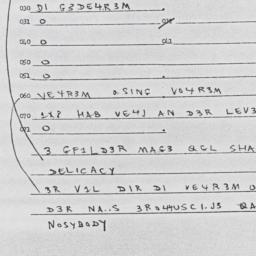 030 DI G3DE4R3M .
031 O
040 O 043
050 O
051 O .
060 VE4R3M O.SING VO4R3M
070 1X? HAB VE4J AN D3R LEV3
072 O .
3 GF1LD3R MAG3 QGL SHA
DELICACY
3R V1L D1R DI VE4R3M O
D3R NA..S 3RO44USCI.JS QA
NOSYBODY